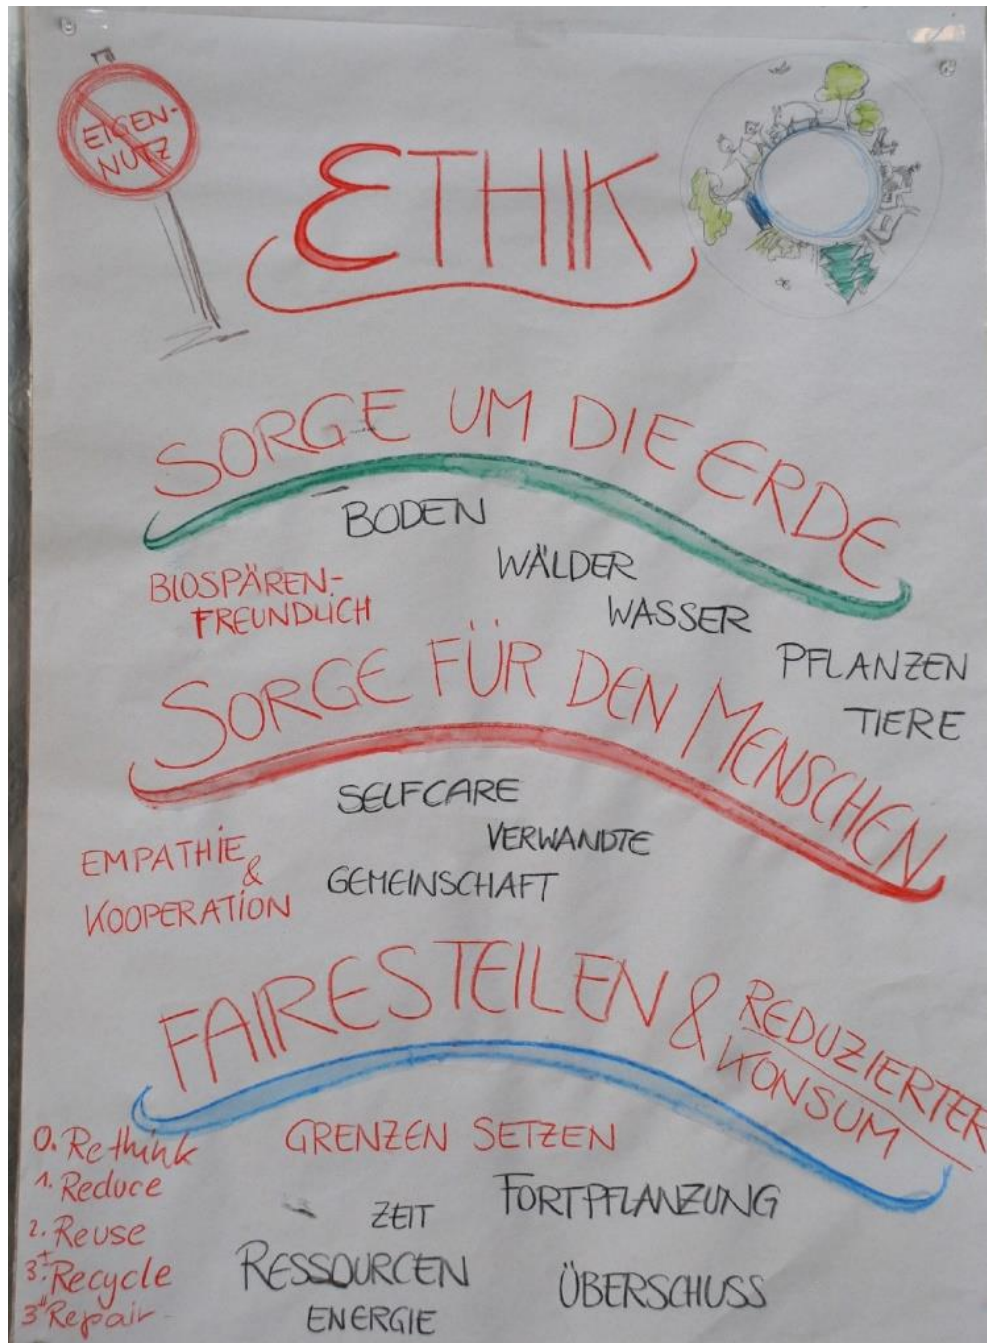 EIGEN-
NUTZ
ETHIK
SORGE UM DIE ERDE
BODEN
WÄLDER
BIOSPÄREN-
FREUNDLICH
WASSER
PFLANZEN
TIERE
SORGE FÜR DEN MENSCHEN
SELFCARE
VERWANDTE
EMPATHIE
&
KOOPERATION
GEMEINSCHAFT
FAIRES TEILEN & REDUZIERTER
KONSUM
GRENZEN SETZEN
0. Rethink
1. Reduce
2. Reuse
3.I Recycle
3.II Repair
ZEIT
FORTPFLANZUNG
RESSOURCEN
ÜBERSCHUSS
ENERGIE